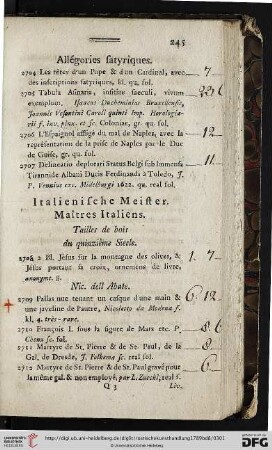 245
Allégories satyriques.
2704 Les têtes d'un Pape & d'un Cardinal, avec
des inscriptions satyriques, kl. qu. fol.
7
2705 Tabula Asinaria, insitire saeculi, vivum
exemplum.
Joannis Vesontini Caroli quinti Imp. Horologia-
rii f. inv. pinx. et sc. Coloniae, gr. qu. fol.
2706 L'Espagnol affligé du mal de Naples, avec la
représentation de la prise de Naples par le Duc
de Guise, gr. qu. fol.
12
2707 Delineatio deplorati Status Belgi sub Immensa
Tirannide Albani Ducis Ferdinandi à Toledo, J.
P. Vennius exc. Middelburgi 1622. qu. real fol.
11
Italienische Meister.
Maîtres Italiens.
Tailles de bois
du quinzième Siecle.
2708 2 Bl. Jésus sur la montagne des olives, &
Jésus portant sa croix, ornemens de livre,
anonyme. 8.
1. 7
Nic. dell Abate.
2709 Pallas nue tenant un casque d'une main &
une javeline de l'autre, Nicoletto da Modena f.
kl. 4. très-rare.
6 12
2710 François I. sous la figure de Mars etc. P.
Chenu sc. fol.
8 6
2711 Martyre de St. Pierre & de St. Paul, de la
Gal. de Dresde, J. Folkema sc. real fol.
8
2712 Martyre de St. Pierre & de St. Paul gravé pour
la même gal. & non employé, par L. Zucchi, real f.
6
Q 3
Liv.
http://digi.ub.uni-heidelberg.de/diglit/rostischekunsthandlung1789bd8/0301